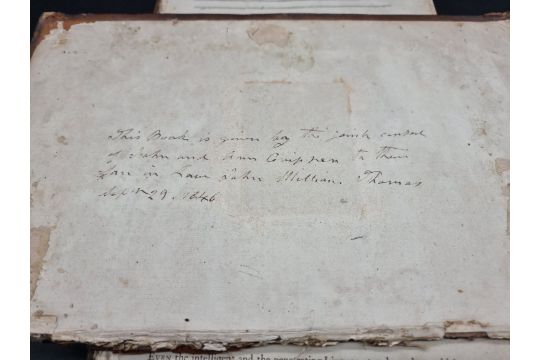 This Book is given by the joint consent
of John and Ann to their
Son in Law John William Thomas
29 1846
EVEN the intelligent and the penetrating